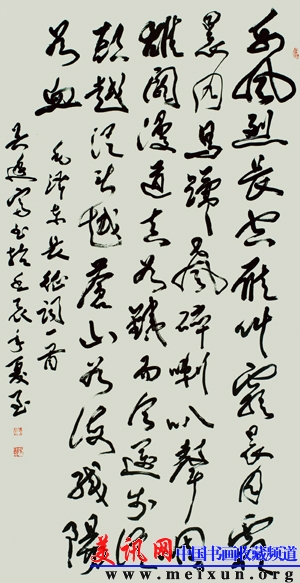 西风烈长空雁叫霜晨月霜
晨月马蹄声碎喇叭声咽
雄关漫道真如铁而今迈步从
头越从头越苍山如海残阳
如血
毛泽东长征词一首
书於壬辰年夏至
美讯网 中国书画收藏频道
www.meixun.org